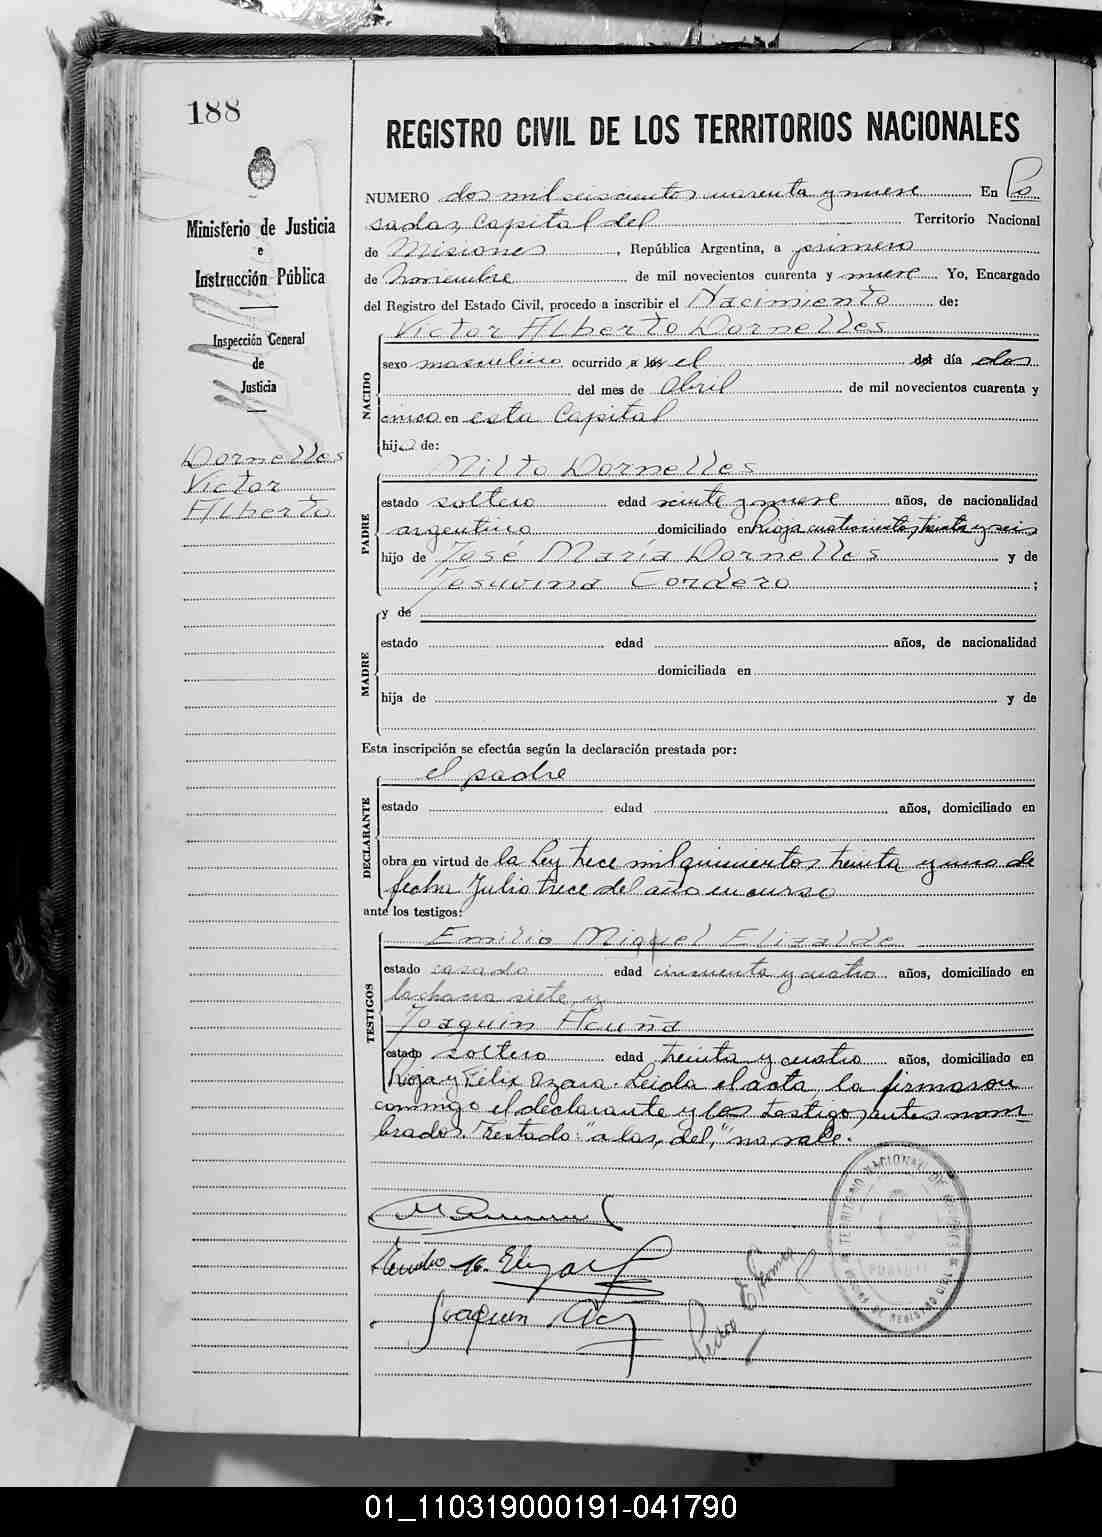 188
REGISTRO CIVIL DE LOS TERRITORIOS NACIONALES
Ministerio de Justicia
e
Instrucción Pública
Inspección General
de
Justicia
Dornelles
Victor
Alberto
NUMERO dos mil seiscientos cuarenta y nueve En Po
sadas, Capital del Territorio Nacional
de Misiones, República Argentina, a primero
de noviembre de mil novecientos cuarenta y nueve Yo, Encargado
del Registro del Estado Civil, procedo a inscribir el Nacimiento de:
Victor Alberto Dornelles
NACIDO
sexo masculino ocurrido a las el del día dos
del mes de Abril de mil novecientos cuarenta y
cinco en esta Capital
hijo de:
Milto Dornelles
PADRE
estado soltero edad veinte y nueve años, de nacionalidad
argentino domiciliado en Rioja cuatrocientos treinta y seis
hijo de José María Dornelles y de
Jesuvina Cordero ;
y de
MADRE
estado edad años, de nacionalidad
domiciliada en
hija de y de
Esta inscripción se efectúa según la declaración prestada por:
el padre
DECLARANTE
estado edad años, domiciliado en
obra en virtud de la Ley trece mil quinientos treinta y uno de
fecha Julio trece del año en curso
ante los testigos:
Emilio Miguel Elizalde
TESTIGOS
estado casado edad cincuenta y cuatro años, domiciliado en
la chacra siete y
Joaquin Acuña
estado soltero edad treinta y cuatro años, domiciliado en
Rioja y Felix Azara. Leida el acta la firmaron
conmigo el declarante y los testigos antes nom
brados. Testado: "a las, del," no vale.
Emilio M. Elizalde
Joaquin Acu
TERRITORIO NACIONAL DE MISIONES
POSADAS
01_110319000191-041790